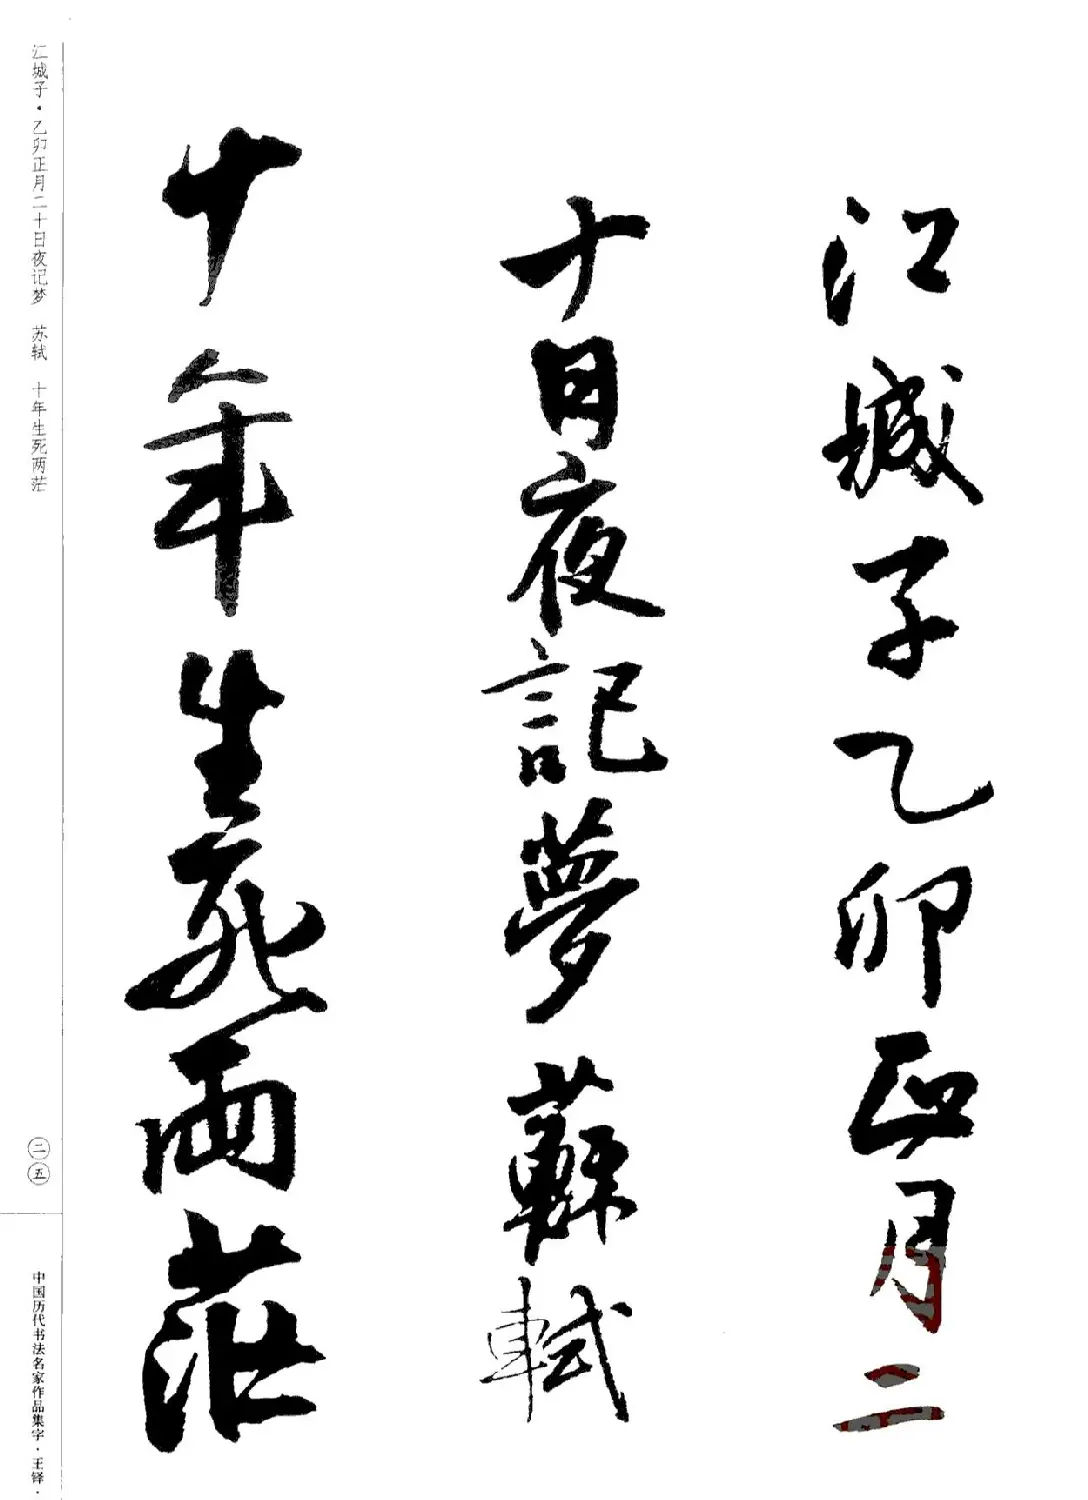 江城子乙卯正月二
十日夜記夢 蘇軾
十年生死兩茫
江城子·乙卯正月二十日夜记梦 苏轼 十年生死两茫
二五
中国历代书法名家作品集字·王铎·